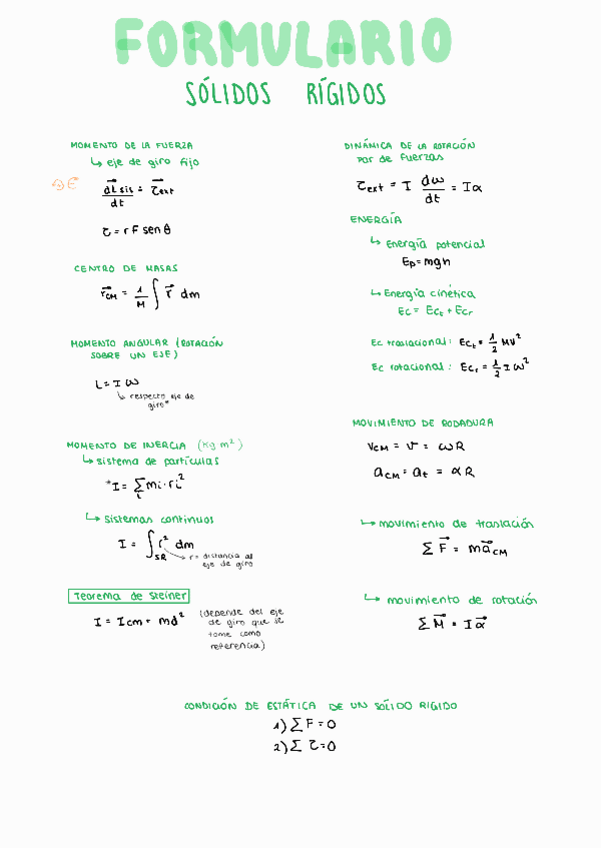 FORMULARIO
SÓLIDOS RÍGIDOS
MOMENTO DE LA FUERZA
↳ eje de giro fijo
dLsis/dt = τext
τ = r F sen θ
CENTRO DE MASAS
rCM = 1/M ∫ r dm
MOMENTO ANGULAR (ROTACIÓN
SOBRE UN EJE)
L = I ω
↳ respecto eje de
giro*
MOMENTO DE INERCIA (Kg m²)
↳ sistema de partículas
*I = Σi mi · ri²
↳ sistemas continuos
I = ∫SR r² dm
r = distancia al
eje de giro
Teorema de Steiner
I = Icm + md²
(depende del eje
de giro que se
tome como
referencia)
DINÁMICA DE LA ROTACIÓN
Par de Fuerzas
τext = I dω/dt = Iα
ENERGÍA
↳ Energía potencial
Ep = mgh
↳ Energía cinética
Ec = Ect + Ecr
Ec traslacional: Ect = 1/2 MV²
Ec rotacional: Ecr = 1/2 I ω²
MOVIMIENTO DE RODADURA
vCM = v = ωR
aCM = at = αR
↳ movimiento de traslación
Σ F = m aCM
↳ movimiento de rotación
Σ M = I α
CONDICIÓN DE ESTÁTICA DE UN SÓLIDO RÍGIDO
1) Σ F = 0
2) Σ τ = 0